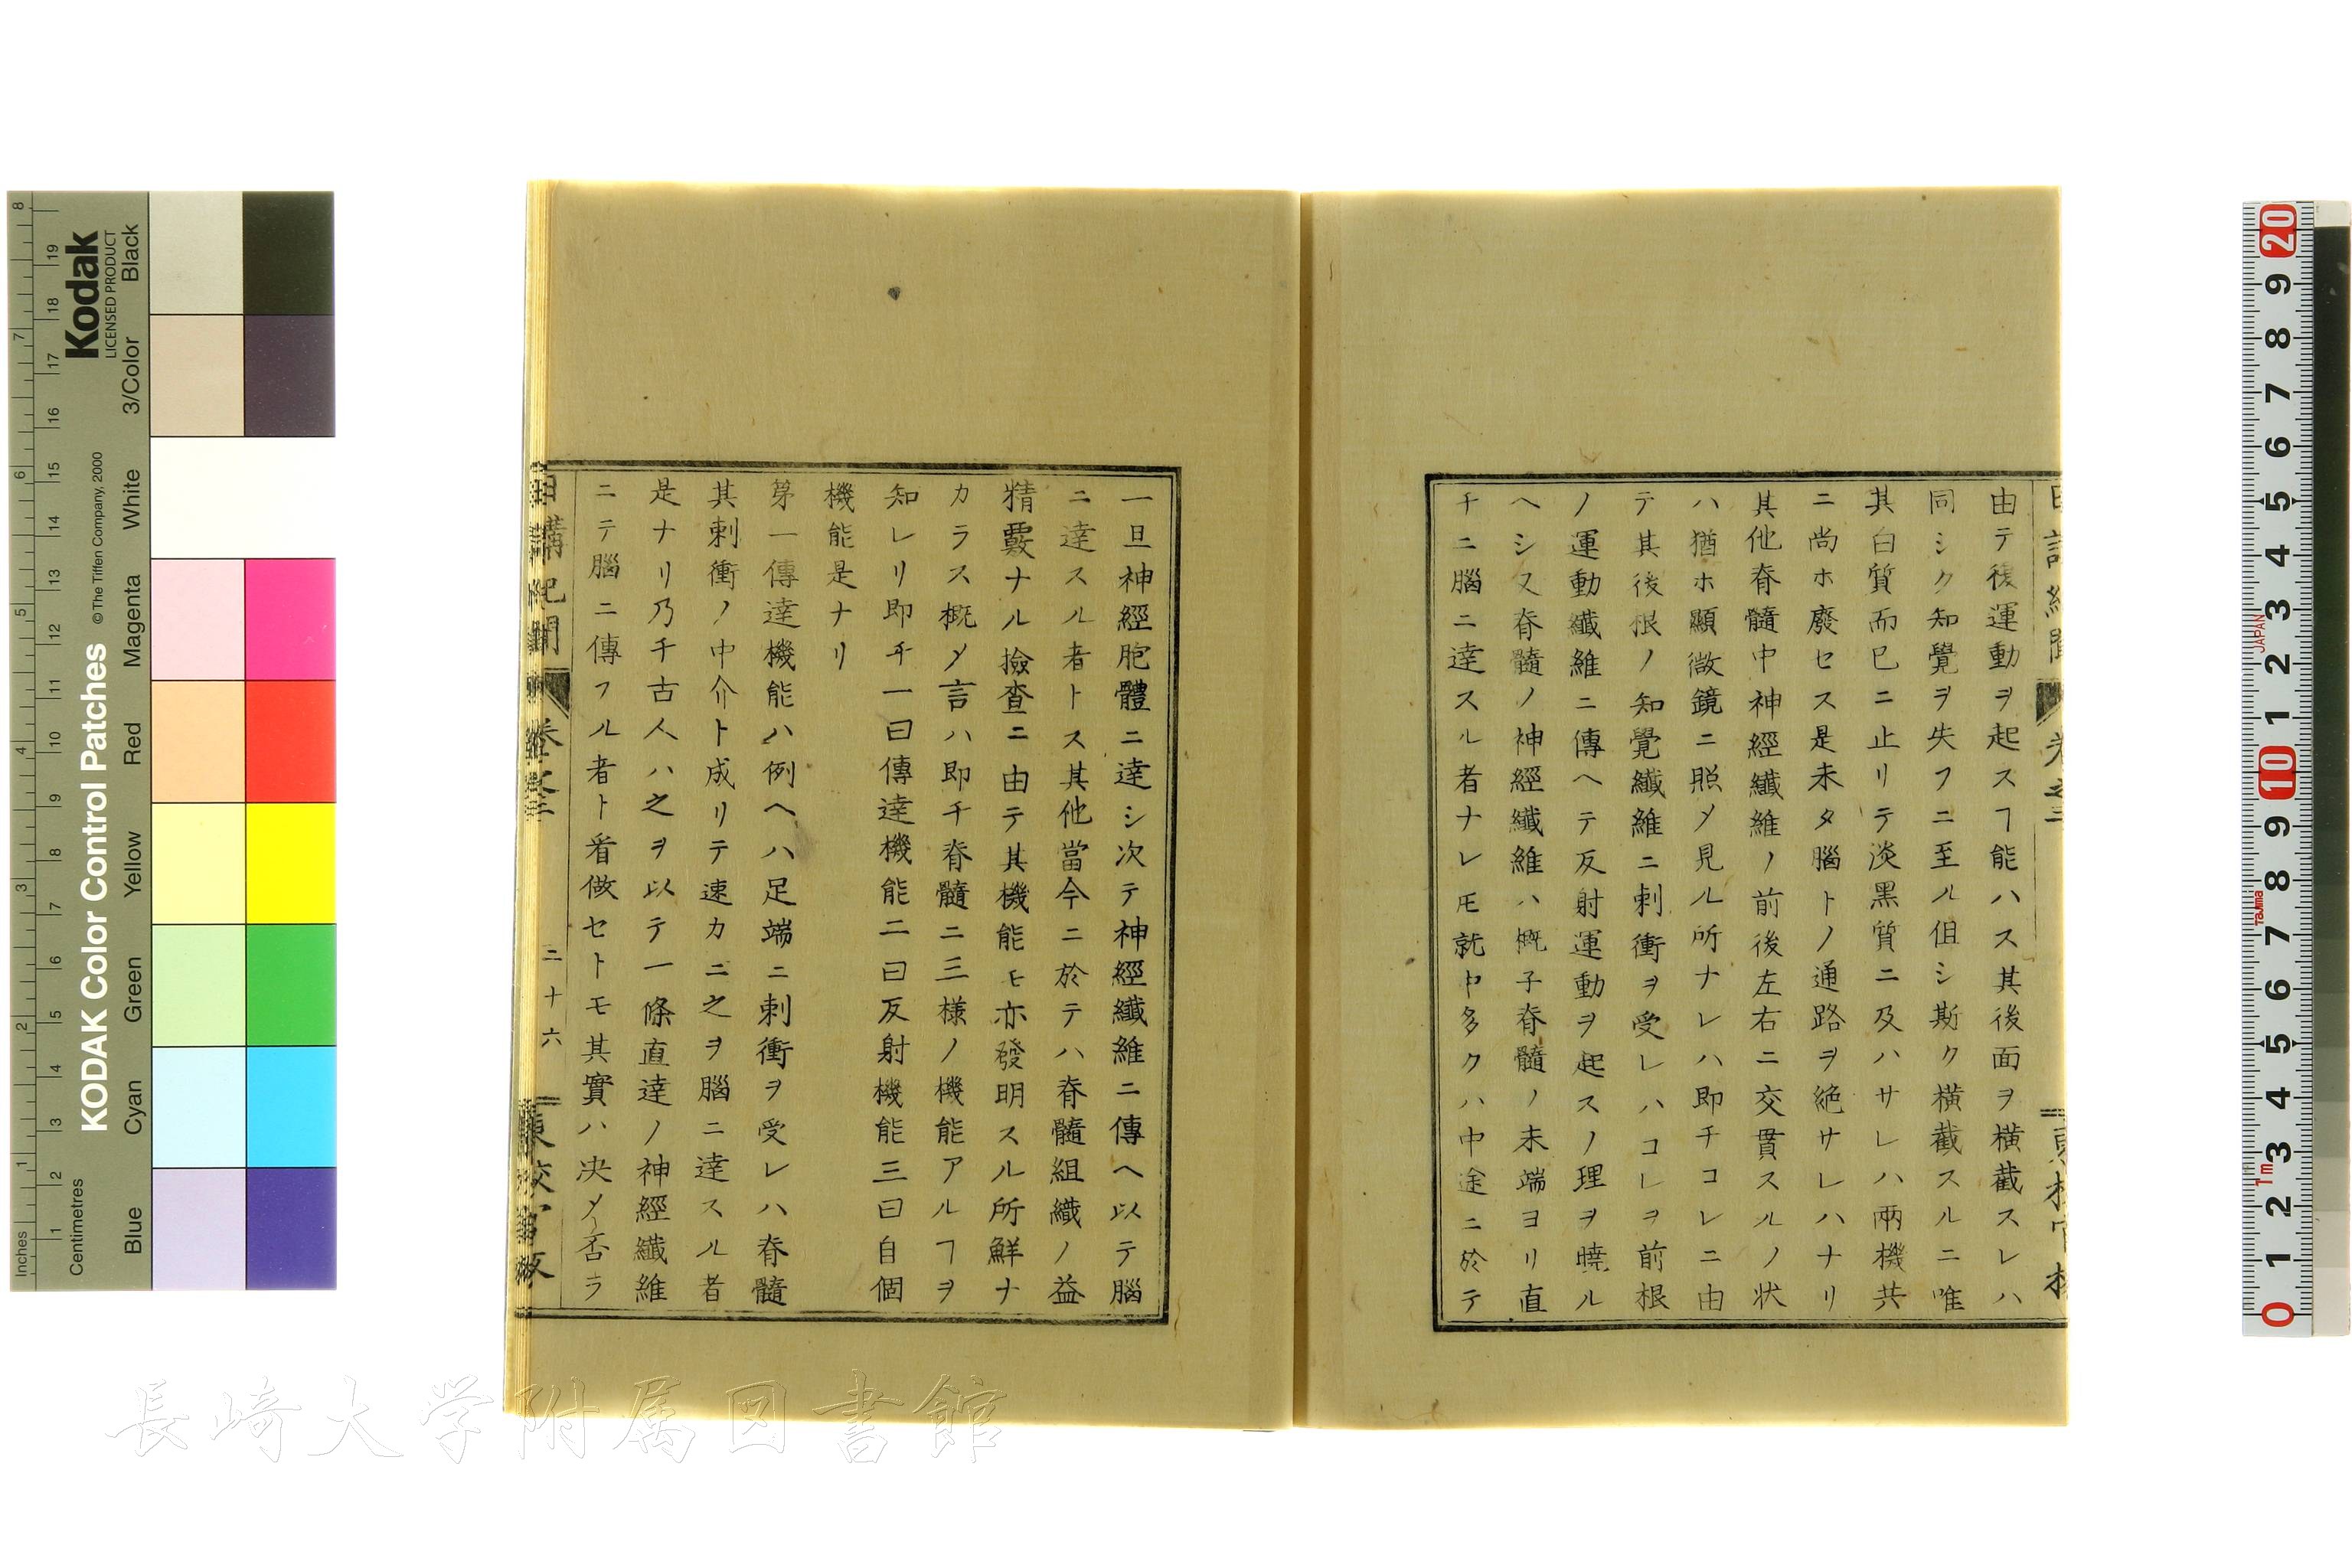 由テ後運動ヲ起スヿ能ハス其後面ヲ横截スレハ
同シク知覺ヲ失フニ至ル但シ斯ク横截スルニ唯
其白質而已ニ止リテ淡黑質ニ及ハサレハ兩機共
ニ尚ホ廢セス是未タ腦トノ通路ヲ絶サレハナリ
其他脊髓中神經纖維ノ前後左右ニ交貫スルノ状
ハ猶ホ顯微鏡ニ照〆見ル所ナレハ即チコレニ由
テ其後根ノ知覺纖維ニ刺衝ヲ受レハコレヲ前根
ノ運動纖維ニ傳ヘテ反射運動ヲ起スノ理ヲ曉ル
ヘシ又脊髓ノ神經纖維ハ概子脊髓ノ末端ヨリ直
チニ腦ニ達スル者ナレ𪜈就中多クハ中途ニ於テ
一旦神經胞體ニ達シ次テ神經纖維ニ傳ヘ以テ腦
ニ達スル者トス其他當今ニ於テハ脊髓組織ノ益
精覈ナル撿查ニ由テ其機能モ亦發明スル所鮮ナ
カラス概〆言ハ即チ脊髓ニ三樣ノ機能アルヿヲ
知レリ即チ一曰傳達機能二曰反射機能三曰自個
機能是ナリ
第一傳達機能ハ例ヘハ足端ニ刺衝ヲ受レハ脊髓
其刺衝ノ中介ト成リテ速カニ之ヲ腦ニ達スル者
是ナリ乃チ古人ハ之ヲ以テ一條直達ノ神經纖維
ニテ腦ニ傳フル者ト看做セトモ其實ハ决〆否ラ
日講紀聞 卷之三
二十六
東校官版
KODAK Color Control Patches
© The Tiffen Company, 2000
Kodak
LICENSED PRODUCT
Inches
Centimetres
Blue Cyan Green Yellow Red Magenta White 3/Color Black
JAPAN
Tajima
1m
長崎大学附属図書館